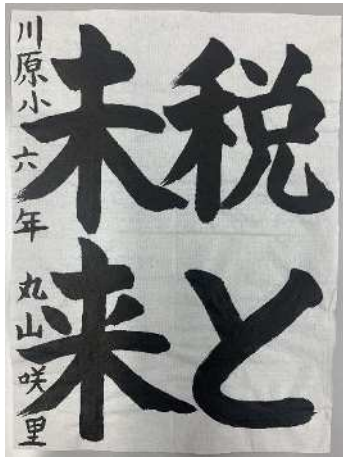 税と
未来
川原小六年 丸山咲里